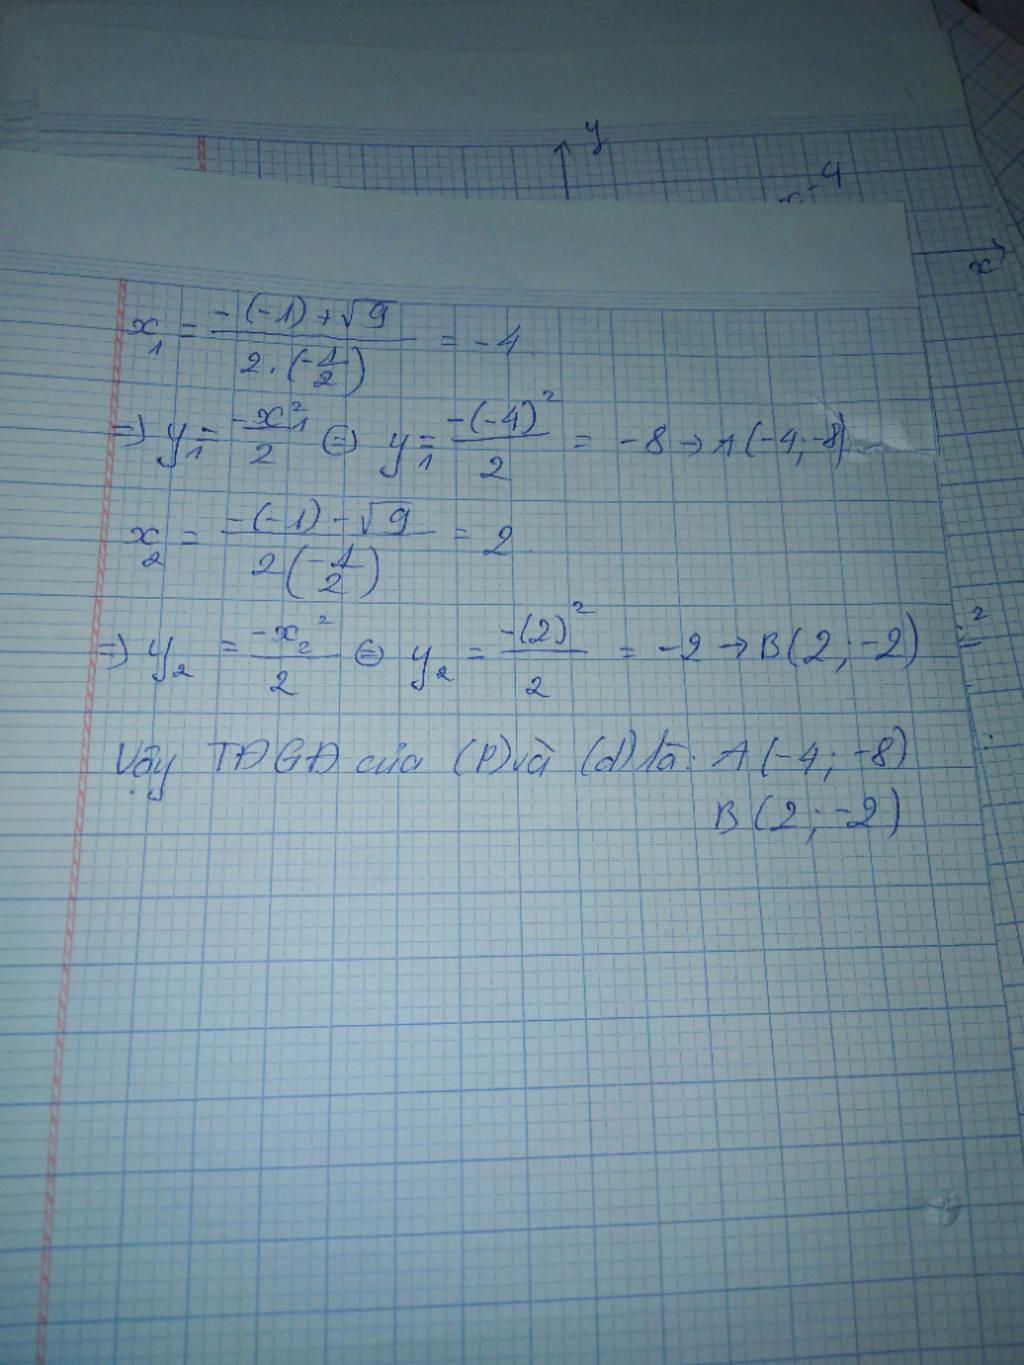 y
x-4
x
x₁ = (-(-1)+√9)/(2.(-1/2)) = -4
=> y₁ = -x₁²/2 ⇔ y₁ = -(-4)²/2 = -8 → A(-4; -8)
x₂ = (-(-1)-√9)/(2(-1/2)) = 2
=> y₂ = -x₂²/2 ⇔ y₂ = -(2)²/2 = -2 → B(2; -2)
Vậy TĐGĐ của (P) và (d) là: A(-4; -8)
B(2; -2)